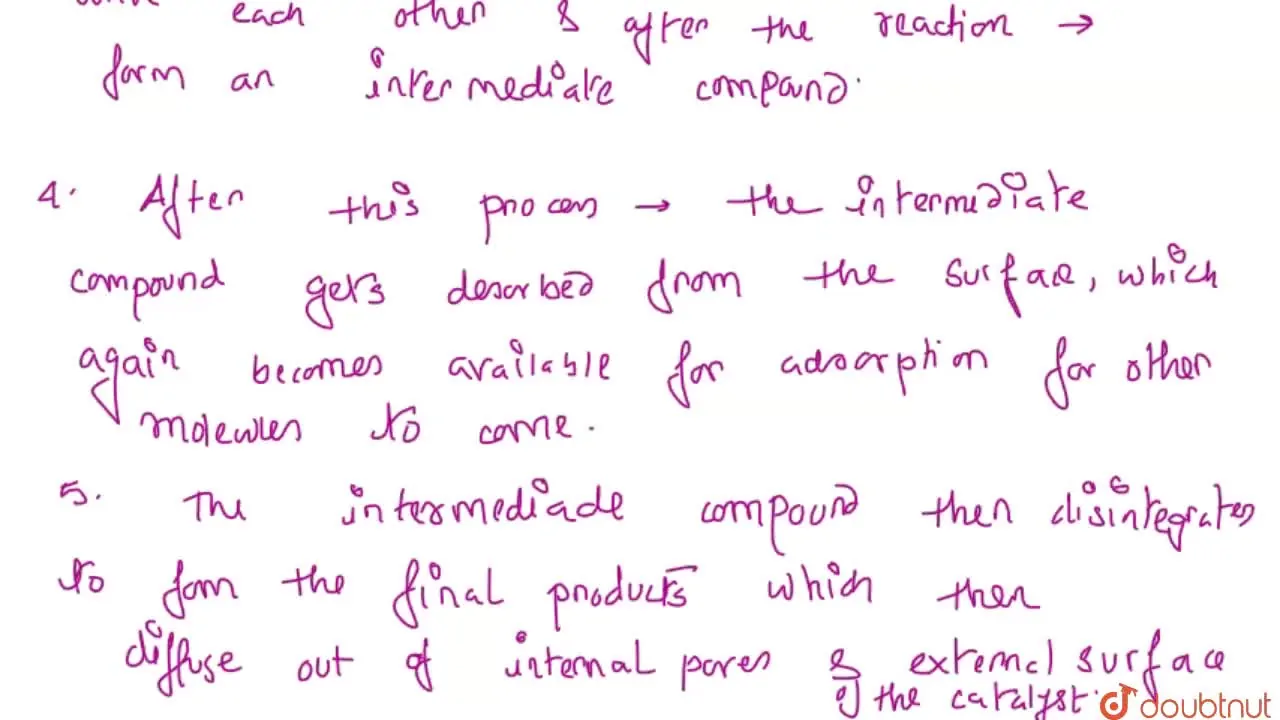 each other & after the reaction →
form an intermediate compound.
4. After this process → the intermediate
compound gets desorbed from the surface, which
again becomes available for adsorption for other
molecules to come.
5. The intermediade compound then disintegrates
to form the final products which then
diffuse out of internal pores & external surface
of the catalyst.
doubtnut